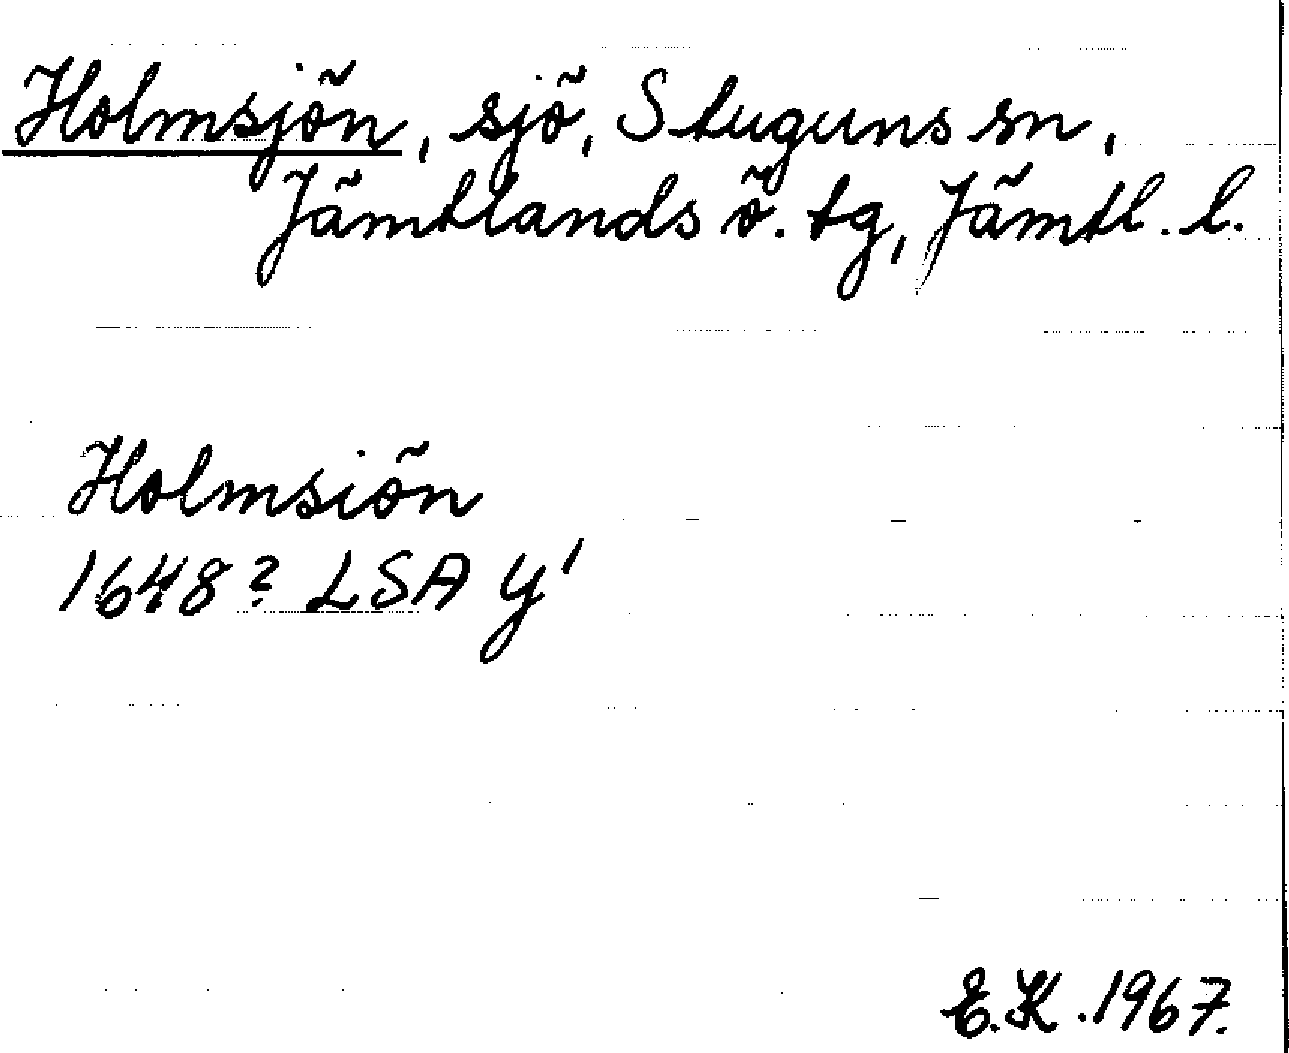 Holmsjön, sjö, Stuguns sn,
Jämtlands ö. tg, Jämtl. l.
Holmsiön
1648? LSA Y'
E.K. 1967.